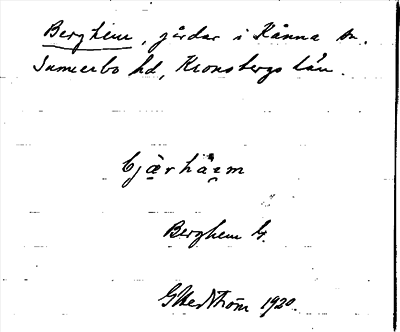 Berghem, gårdar i Kånna sn.
Sunnerbo hd, Kronobergs län.
bjärhäem
Berghem G.
G Hedström 1920.